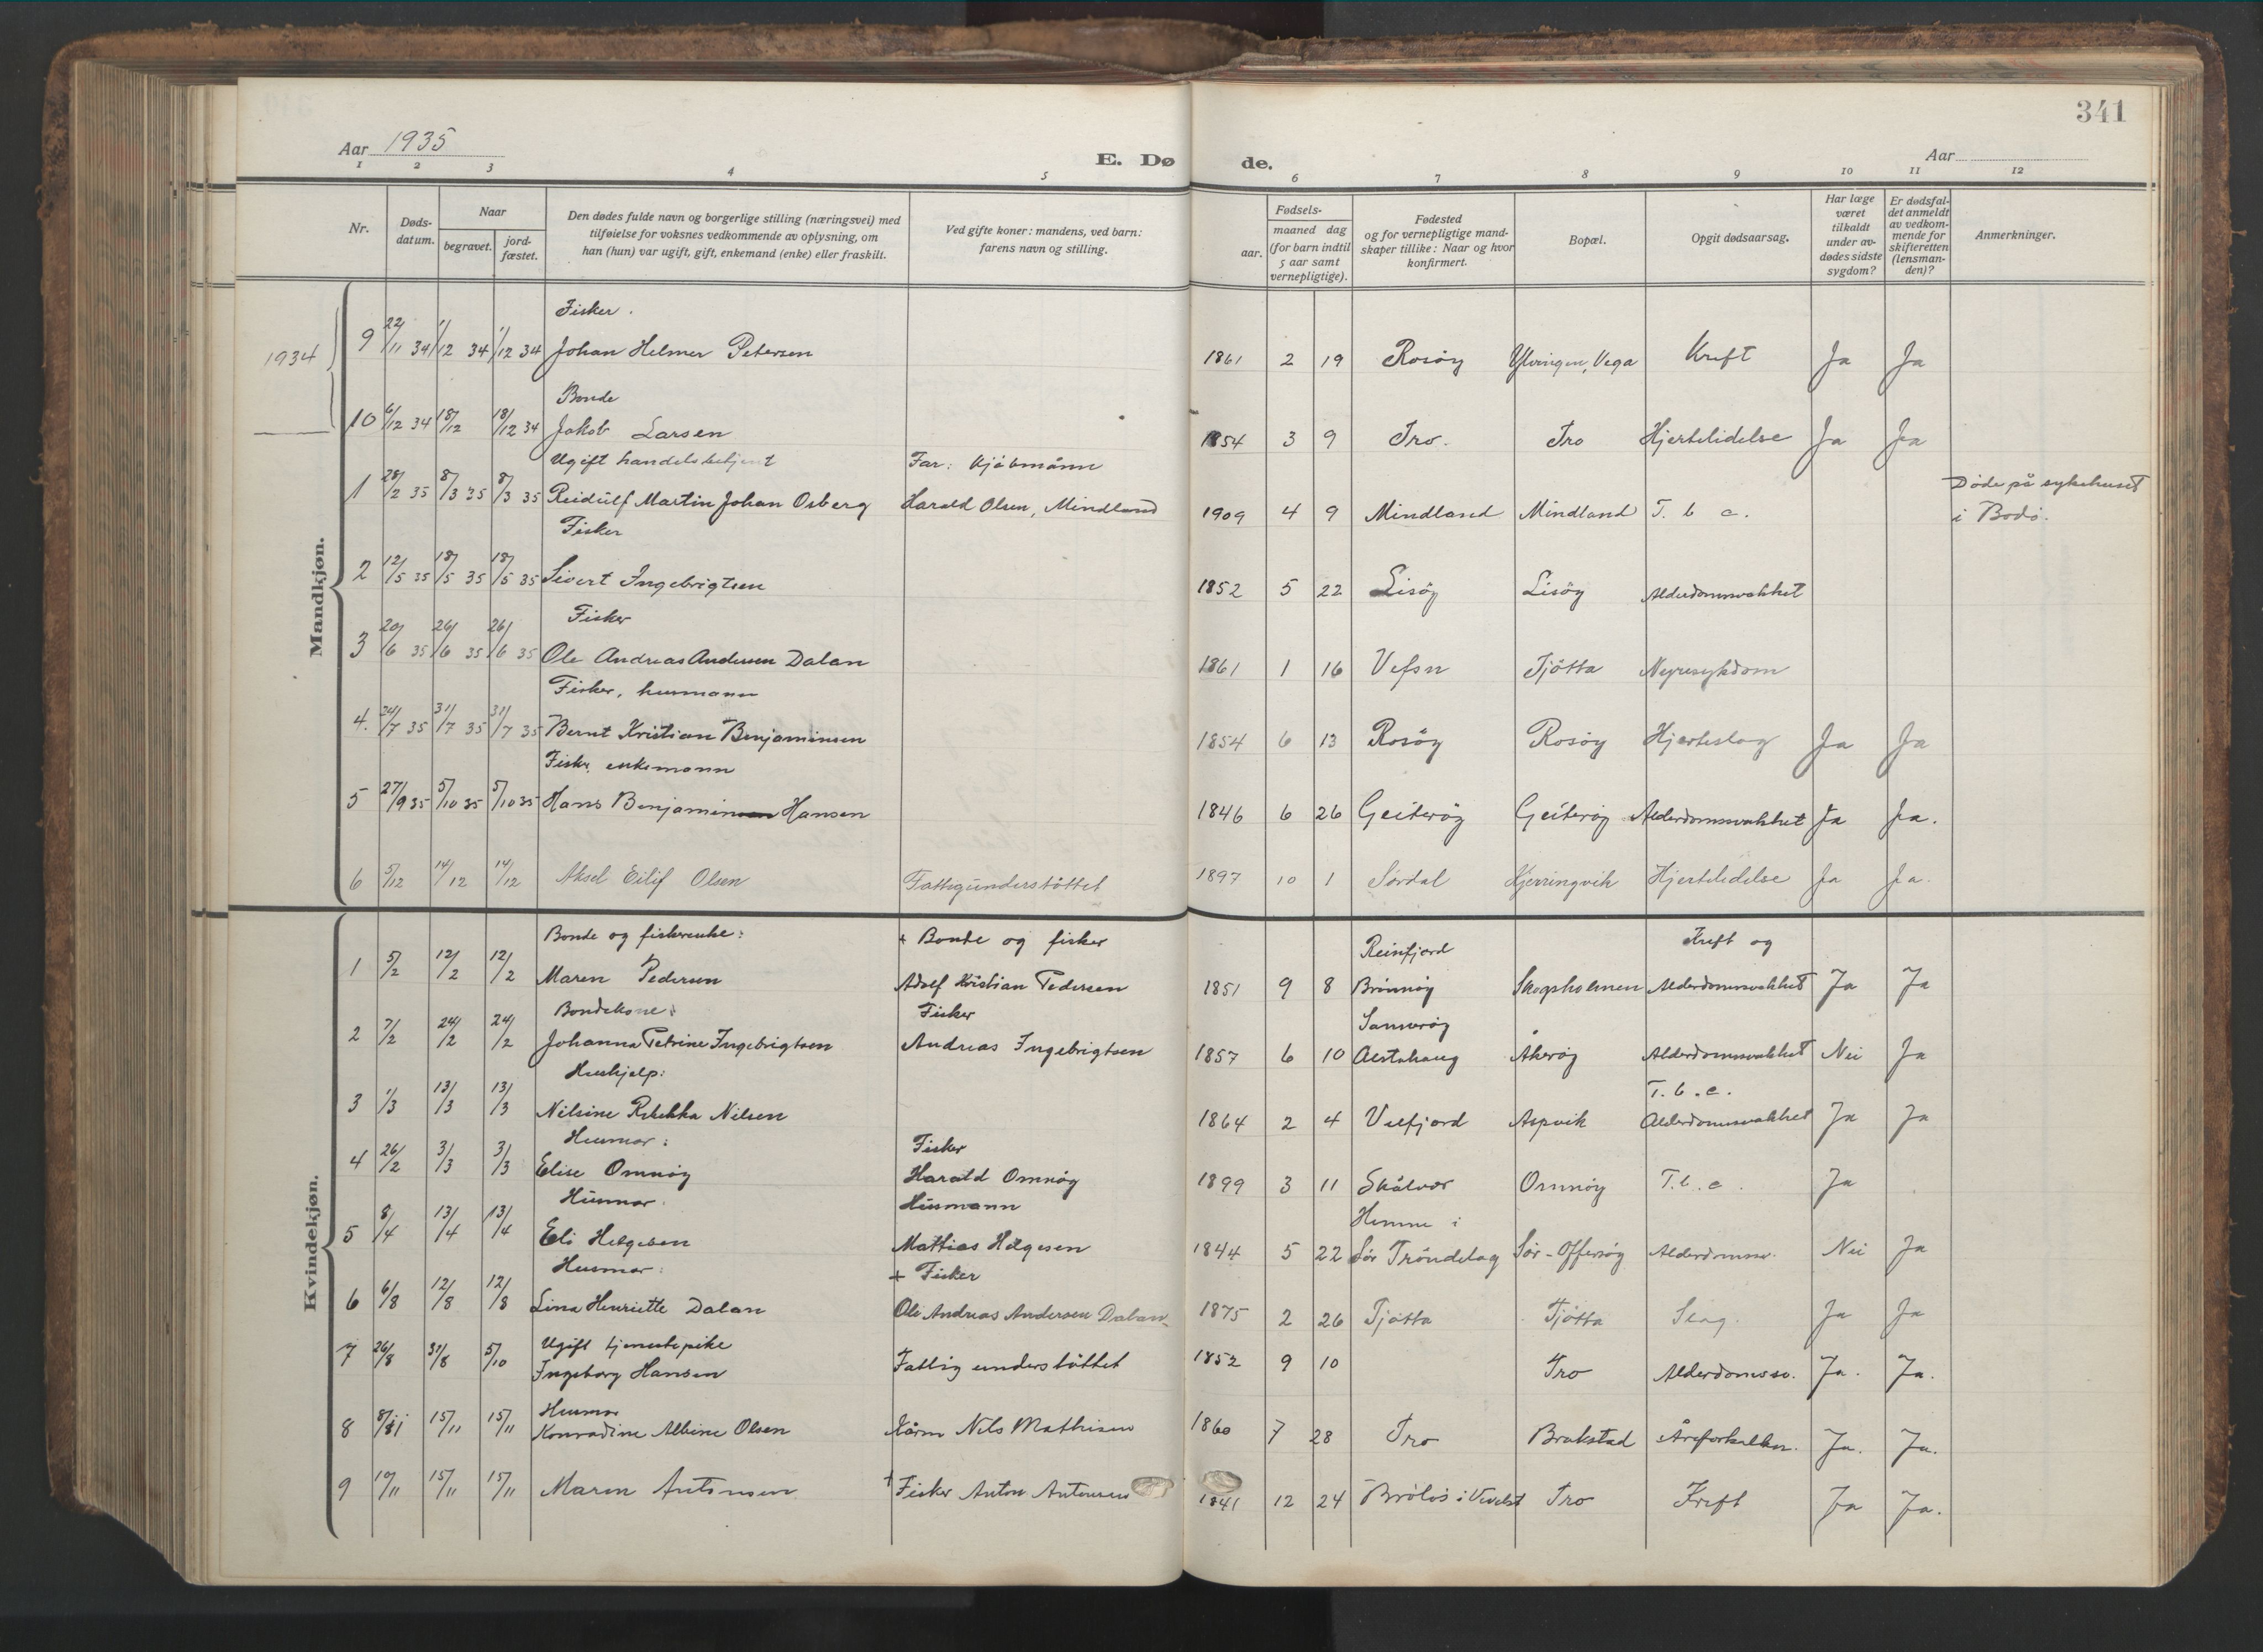 341
Aar 1935
E. Dø de.
Aar
1 2 3 4 5 6 7 8 9 10 11 12
Nr.
Døds-
datum.
Naar
begravet.
jord-
fæstet.
Den dødes fulde navn og borgerlige stilling (næringsvei) med
tilføielse for voksnes vedkommende av oplysning, om
han (hun) var ugift, gift, enkemand (enke) eller fraskilt.
Ved gifte koner: mandens, ved barn:
farens navn og stilling.
Fødsels-
aar.
maaned dag
(for barn indtil
5 aar samt
vernepligtige).
Fødested
og for vernepligtige mand-
skaper tillike: Naar og hvor
konfirmert.
Bopæl.
Opgit dødsaarsag.
Har læge
været
tilkaldt
under av-
dødes sidste
sygdom?
Er dødsfal-
det anmeldt
av vedkom-
mende for
skifteretten
(lensman-
den)?
Anmerkninger.
Mandkjøn.
1934
Fisker.
9 22/11 34 1/12 34 1/12 34 Johan Helmer Petersen 1861 2 19 Rosöy Ylvingen, Vega Kreft Ja Ja
Bonde
10 6/12 34 18/12 18/12 34 Jakob Larsen 1854 3 9 Tro. Tro Hjertelidelse Ja Ja
Ugift handelsbetjent Far: Kjöbmann
1 28/2 35 8/3 35 8/3 35 Reidulf Martin Johan Osberg Harald Olsen, Mindland 1909 4 9 Mindland Mindland T. b c. Døde på sykehuset
i Bodö.
Fisker
2 12/5 35 18/5 35 18/5 35 Sivert Ingebrigtsen 1852 5 22 Lisöy Lisöy Alderdomssvakhet
Fisker
3 20/6 35 26/6 35 26/6 35 Ole Andreas Andersen Dalan 1861 1 16 Vefsn Tjötta Nyresykdom
Fisker, husmann
4. 24/7 35 31/7 35 31/7 35 Bernt Kristian Benjaminsen 1854 6 13 Rosöy Rosöy Hjerteslag Ja Ja
Fisker, enkemann
5 27/9 35 5/10 35 5/10 35 Hans Benjamin Hansen 1846 6 26 Geiteröy Geiteröy Alderdomssvakhet Ja Ja.
6 5/12 14/12 14/12 Aksel Eilif Olsen Fattigunderstöttet 1897 10 1 Sördal Kjerringvik Hjertelidelse Ja Ja.
Kvindekjøn.
Bonde og fiskerenke: + Bonde og fisker Reinfjord Kreft og
1 5/2 12/2 12/2 Maren Pedersen Adolf Kristian Pedersen 1851 9 8 Brönnöy Skogsholmen Alderdomssvakhet Ja Ja
Bondekone: Fisker
2 7/2 24/2 24/2 Johanna Petrine Ingebrigtsen Andreas Ingebrigtsen 1857 6 10 Alstahaug Åkeröy Alderdomssvakhet Nei Ja
Hushjelp: T. b. c.
3 1/3 13/3 13/3 Nilsine Rebekka Nilsen 1864 2 4 Velfjord Aspvik Alderdomssvakhet Ja Ja
Husmor: Fisker
4 26/2 3/3 3/3 Elise Omnöy Harald Omnöy 1899 3 11 Skålvær Omnöy T.b.c. Ja
Husmor. Husmann Hemne i
5 8/4 13/4 13/4 Eli Helgesen Mattias Helgesen 1844 5 22 Sör Tröndelag Sör-Offersöy Alderdomssv. Nei Ja
Husmor: + Fisker
6 6/8 12/8 12/8 Lina Henriette Dalan Ole Andreas Andersen Dalan. 1875 2 26 Tjötta Tjötta Slag. Ja Ja
Ugift tjenestepike
7 26/8 31/8 5/10 Ingeborg Hansen Fattig understöttet 1852 9 10 Tro Alderdomssv. Ja. Ja.
Husmor
8 8/11 15/11 15/11 Konradine Albine Olsen Nils Mathisen 1860 7 28 Tro Brakstad Åreforkalkn. Ja. Ja.
9 10/11 15/11 15/11 Maren Antonsen + Fisker Anton Antonsen 1841 12 24 i Vevelst. Tro Kreft Ja Ja.